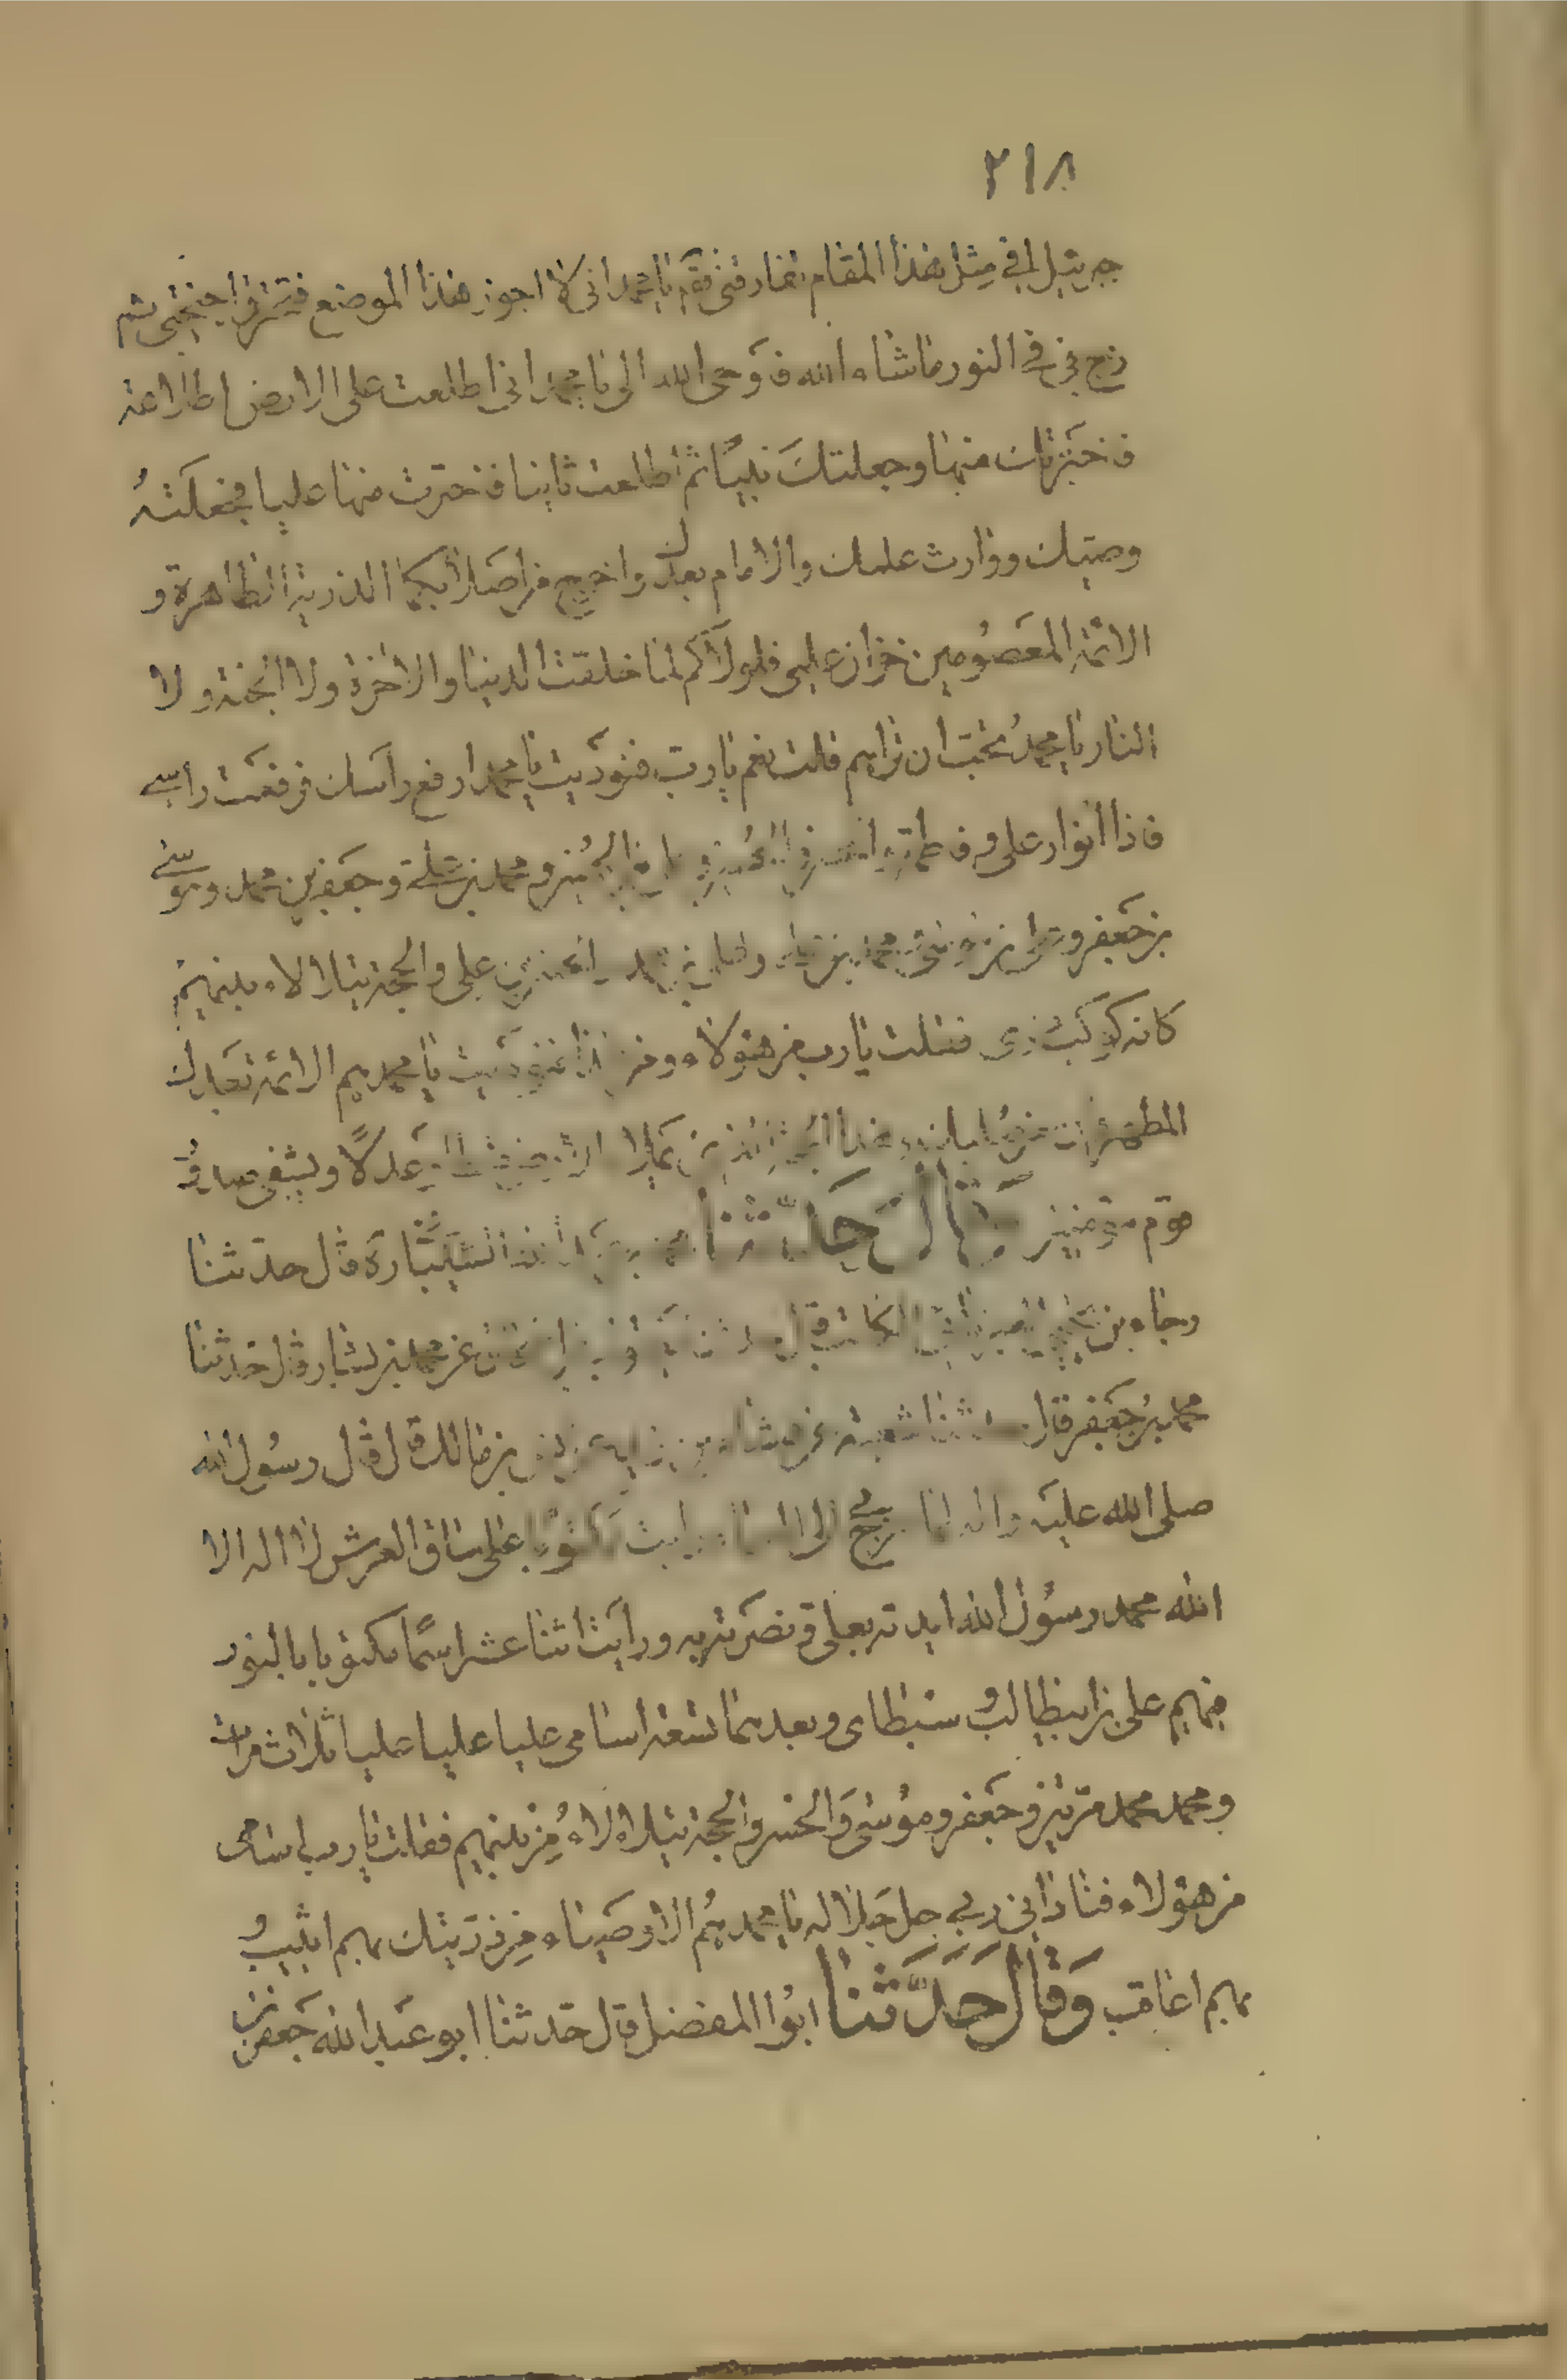 ٢١٨
جبرئيل افي مثل هذا المقام تفارقني فقم يا محمد اني لا اجوز هذا الموضع فتحترق اجنحتي ثم
زج بي في النور ما شاء الله فأوحى الله الى يا محمد اني اطلعت على الارض اطلاعة
فاختزتك منها وجعلتك نبيًا ثم اطلعت ثانيا فاخترت منها عليا فجعلته
وصيك ووارث علمك والامام بعدك واخرج من اصلابكما الذرية الطاهرة و
الائمة المعصومين خزان علمي فلولاكم لما خلقت الدنيا والاخرة ولا الجنة ولا
النار يا محمد تحب ان تراهم قلت نعم يا رب فنوديت يا محمد ارفع رأسك فرفعت راسي
فاذا انوار علي وفاطمة والحسن والحسين ومحمد بن علي وجعفر بن محمد وموسى
بن جعفر وعلي بن موسى ومحمد بن علي وعلي بن محمد والحسن بن علي والحجة يتلالاء بينهم
كانه كوكب دري فقلت يا رب من هؤلاء ومن هذا فنوديت يا محمد هم الائمة بعدك
المطهرون من صلبك وهذا الحجة الذي يملا الارض قسطا وعدلًا ويشفي صدور
قوم مؤمنين وقال حدثنا قال حدثنا
رجاء بن يحيى الكاتب قال عن محمد بن بشار قال حدثنا
محمد بن جعفر قال حدثنا شعبة عن هشام بن زيد عن انس بن مالك قال قال رسول الله
صلى الله عليه واله لما عرج بي الى السماء رايت مكتوبًا على ساق العرش لا اله الا
الله محمد رسول الله ايدته بعلي ونصرته به ورأيت اثنا عشر اسمًا مكتوبا بالنور
فيهم علي بن ابيطالب وسبطاي وبعدهما تسعة اسامي عليا عليا عليا ثلاث مرات
ومحمد محمد مرتين وجعفر وموسى والحسن والحجة يتلالاء من بينهم فقلت يا رب اسامي
من هؤلاء فناداني ربي جل جلاله يا محمد هم الاوصياء من ذريتك بهم اثيب و
بهم اعاقب وقال حدثنا ابو المفضل قال حدثنا ابو عبد الله جعفر بن